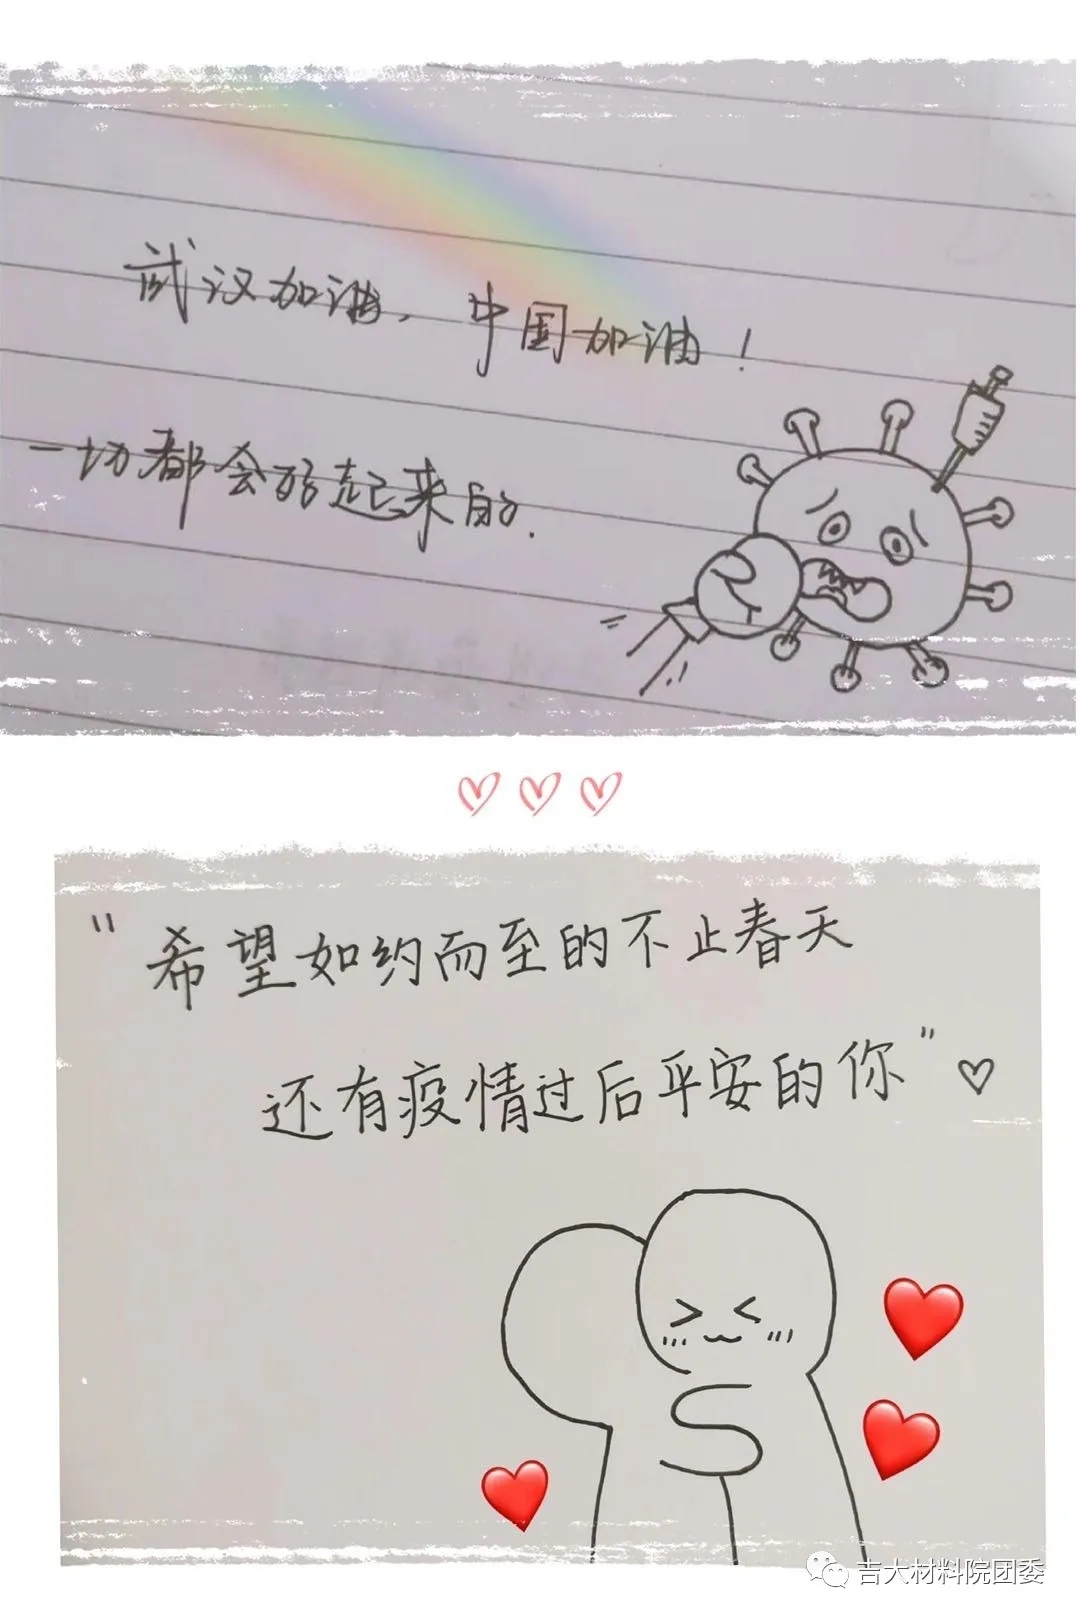 武汉加油，中国加油！
一切都会好起来的.
"希望如约而至的不止春天
还有疫情过后平安的你"
吉大材料院团委